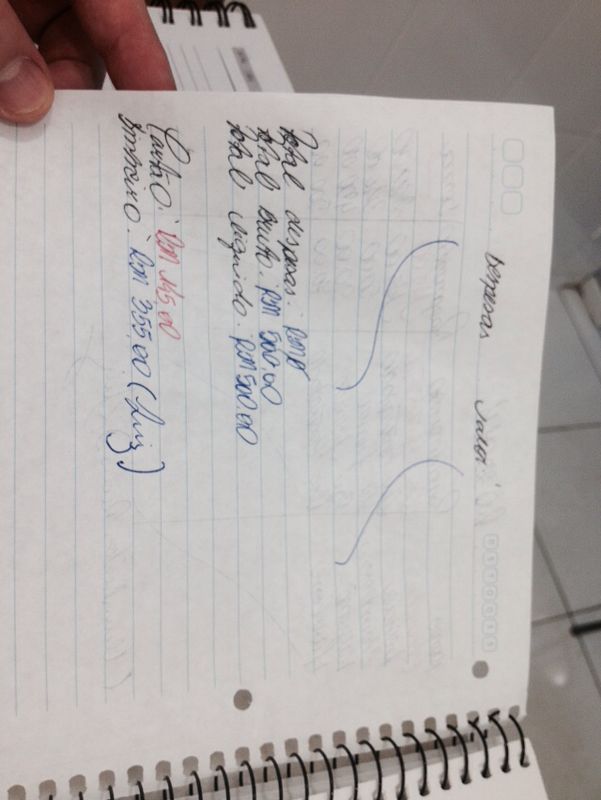 Despesas Valor
Total despesas: R$ 0
Total bruto: R$ 500,00
Total líquido: R$ 500,00
Cartão: R$ 145,00
Dinheiro: R$ 355,00 (Luiz)